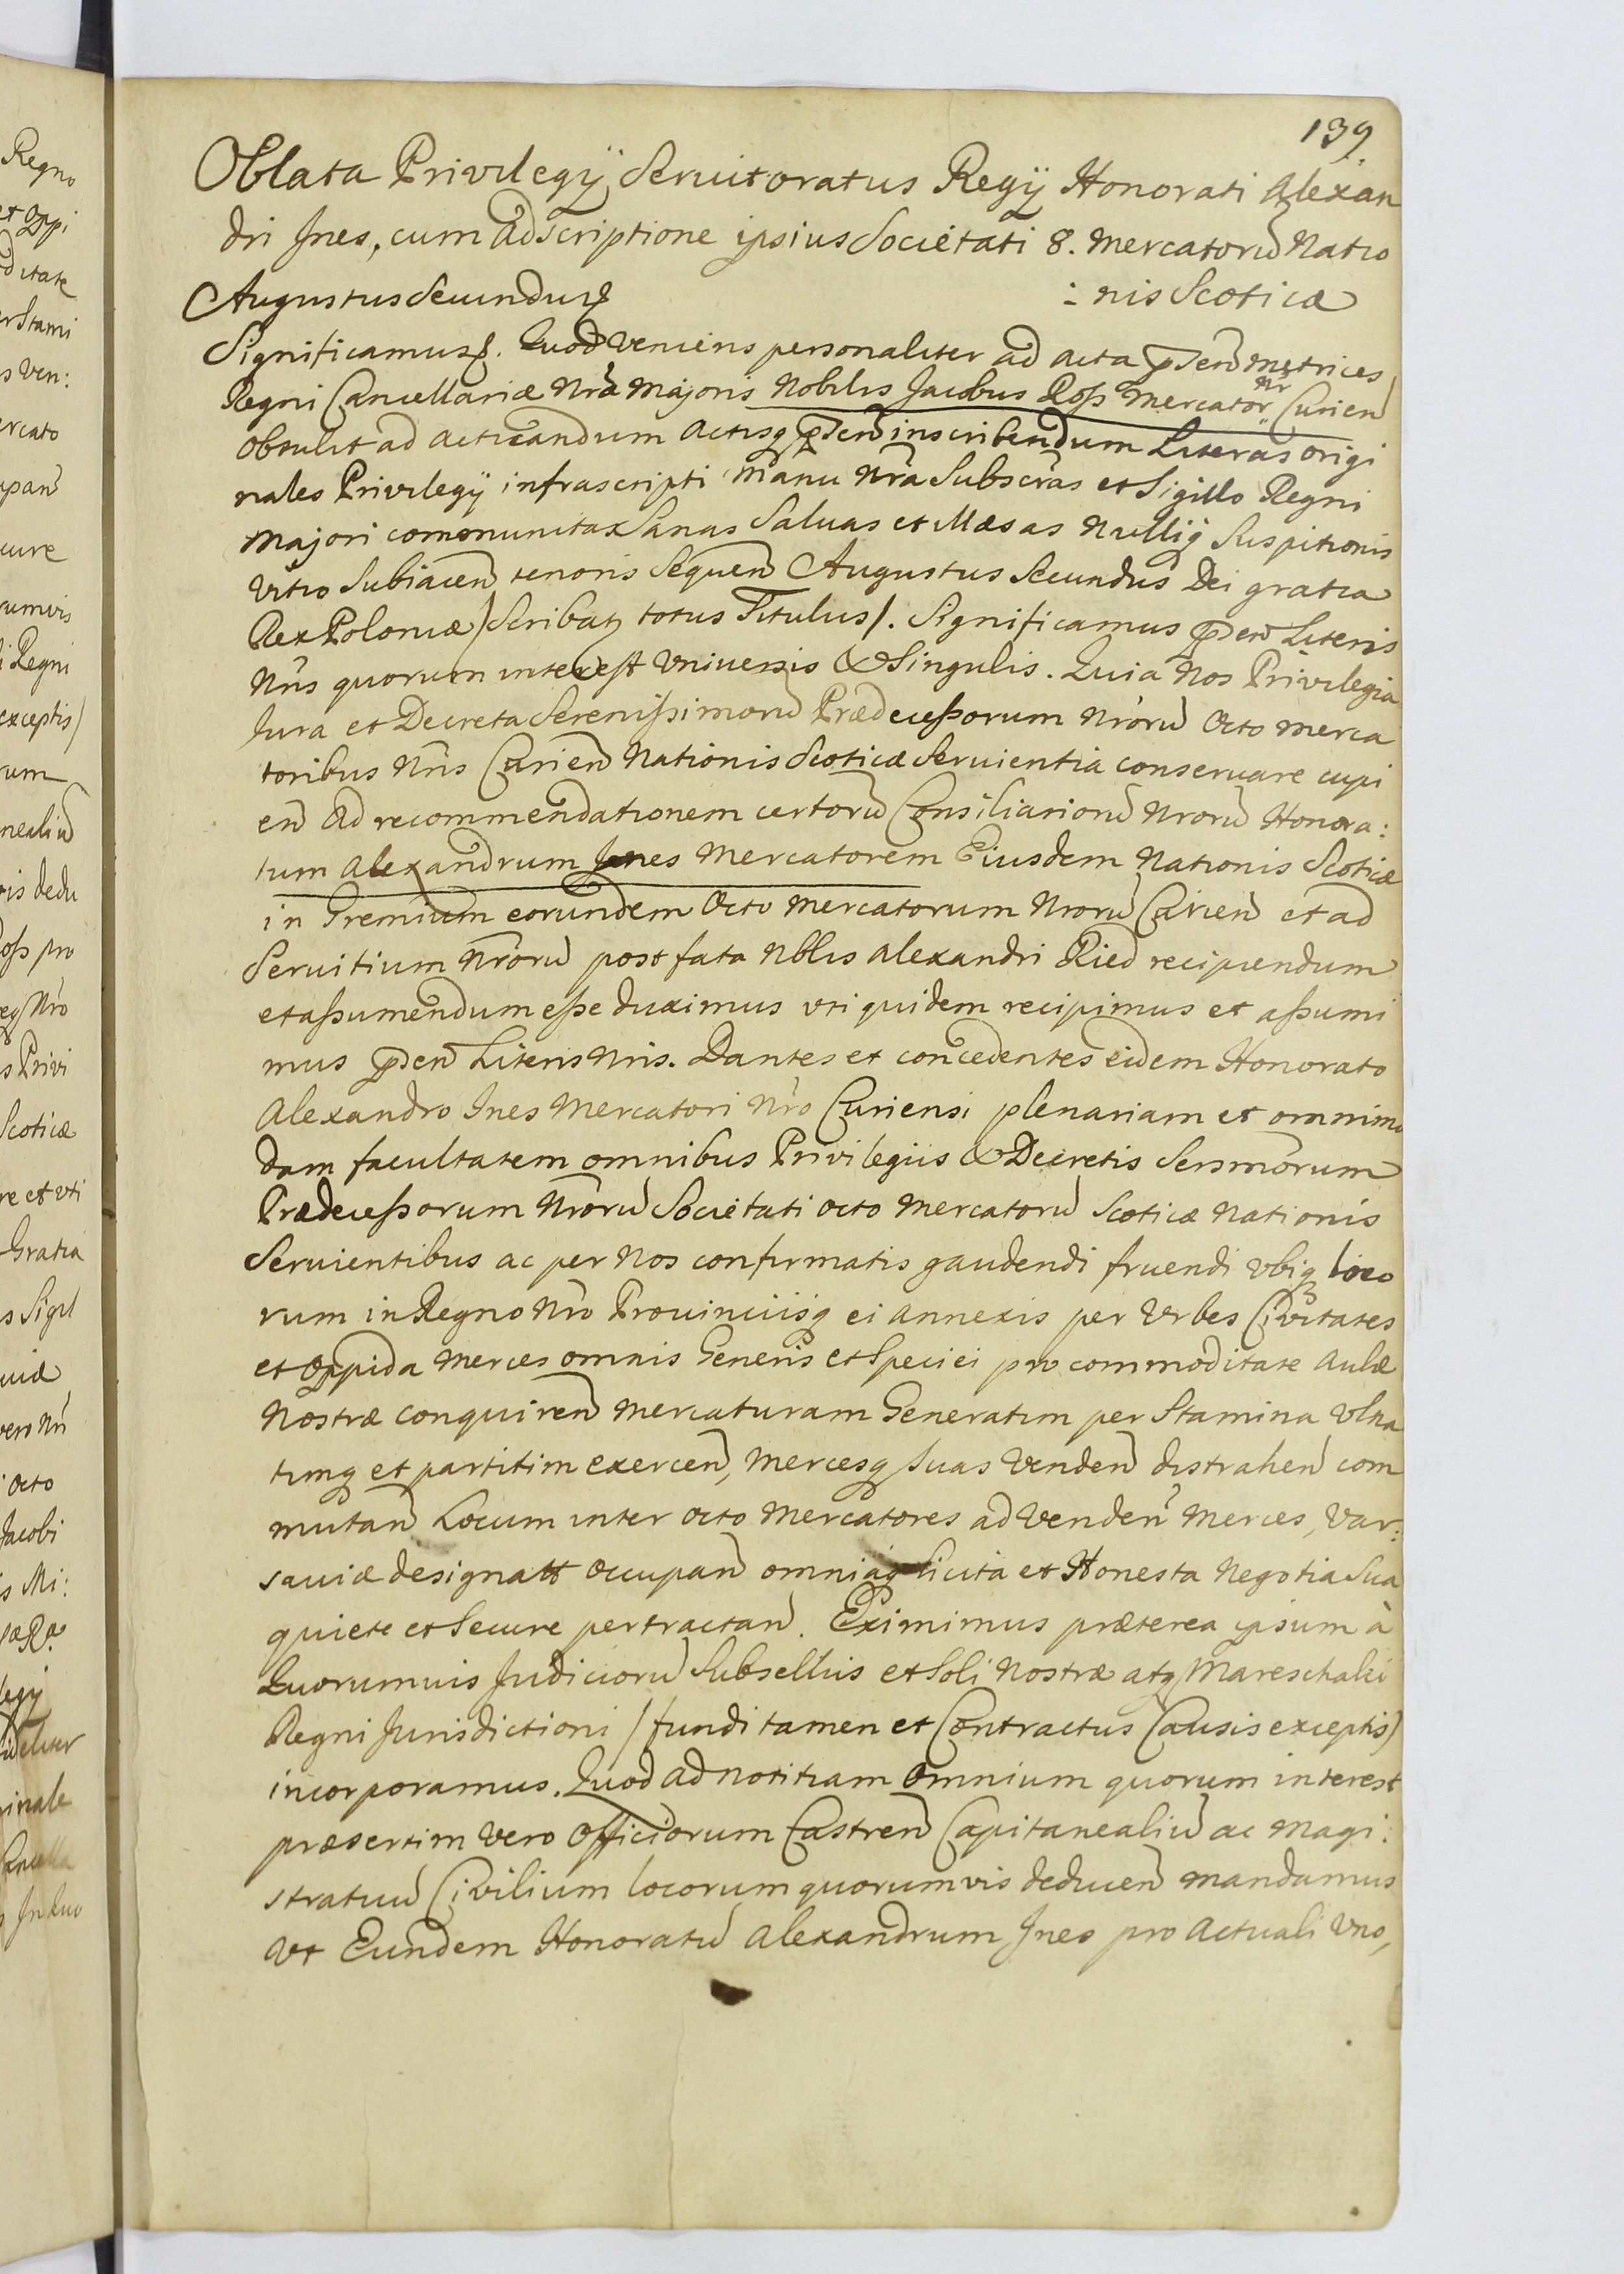 139.
Oblata Privilegÿ Seruitoratus Regÿ Honorati Alexan
dri Jnes, cum adscriptione ipsius Societati 8. Mercatorũ Natio
Augustus Secundus
:nis Scoticæ
Significamus. Quod veniens personaliter ad acta p̃sen̄ Metrices
nr̃
Regni Cancellariæ Nr̃æ Majoris Nobilis Jacobus Ross Mercator Curien̄
obtulit ad acticandum actisq p̃sen̄ inscribendum Literas origi
nales Privilegÿ infrascripti Manu Nr̃a Subscr̃as et Sigillo Regni
Majori communitas Sanas Saluas et Illæsas Nulliq Suspitionis
vitio Subiacen̄ tenoris Sequen̄ Augustus Secundus Dei gratia
Rex Poloniæ /Scribatꝫ totus Titulus/. Significamus p̃sen̄ Literis
Nr̃is quorum interest Vniuersis & Singulis. Quia Nos Privilegia
Jura et Decreta Serenissimorũ Prædecessorum Nr̃orũ Octo Merca
toribus Nr̃is Curien̄ Nationis Scoticæ Seruientia conseruare cupi
en̄ ad recommendationem certorũ Consiliariorũ Nrorũ Honora:
tum Alexandrum Jnes Mercatorem Eiusdem Nationis Scoticæ
in Gremium eorundem Octo Mercatorum Nrorũ Curien̄ et ad
Seruitium Nr̃orũ post fata Nblis Alexandri Ried recipiendum
et assumendum esse duximus vti quidem recipimus et assumi
mus p̃sen̄ Literis Nris. Dantes et concedentes eidem Honorato
Alexandro Jnes Mercatori Nr̃o Curiensi plenariam et omnimo
dam facultatem omnibus Privilegiis & Decretis Sersmōrum
Prædecessorum Nr̃orũ Societati octo Mercatorũ Scoticæ Nationis
Seruientibus ac per Nos confirmatis gaudendi fruendi vbiq loco
rum in Regno Nr̃o Prouinciisq ei annexis per Vrbes Civitates
et oppida Merces omnis Generis et Speciei pro commoditate Aulæ
Nostræ conquiren̄ Mercaturam Generatim per Stamina vlna
timq et partitim exercen̄, Mercesq suas venden̄ distrahen̄ com
mutan̄ Locum inter octo Mercatores ad venden̄ Merces, Var:
saviæ designatt occupan̄ omniaq licita et Honesta Negotia Sua
quiete et Secure pertractan̄. Eximimus præterea ipsum à
Quorumuis Judiciorũ Subselliis et Soli Nostræ atq Mareschalci
Regni Jurisdictioni /fundi tamen et Contractus Causis exceptis/
incorporamus. Quod ad notitiam omnium quorum interest
præsertim vero Officiorum Castren̄ Capitanealiũ ac Magi:
stratuũ Civilium locorum quorumvis deducen̄ mandamus
Vt Eundem Honoratũ Alexandrum Jnes pro actuali Vno,